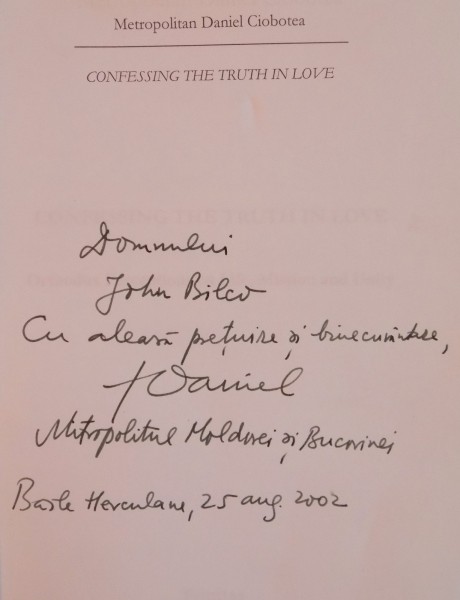 Metropolitan Daniel Ciobotea
CONFESSING THE TRUTH IN LOVE
Domnului
John Bilco
Cu aleasă prețuire și binecuvântare,
† Daniel
Mitropolitul Moldovei și Bucovinei
Baile Herculane, 25 aug. 2002